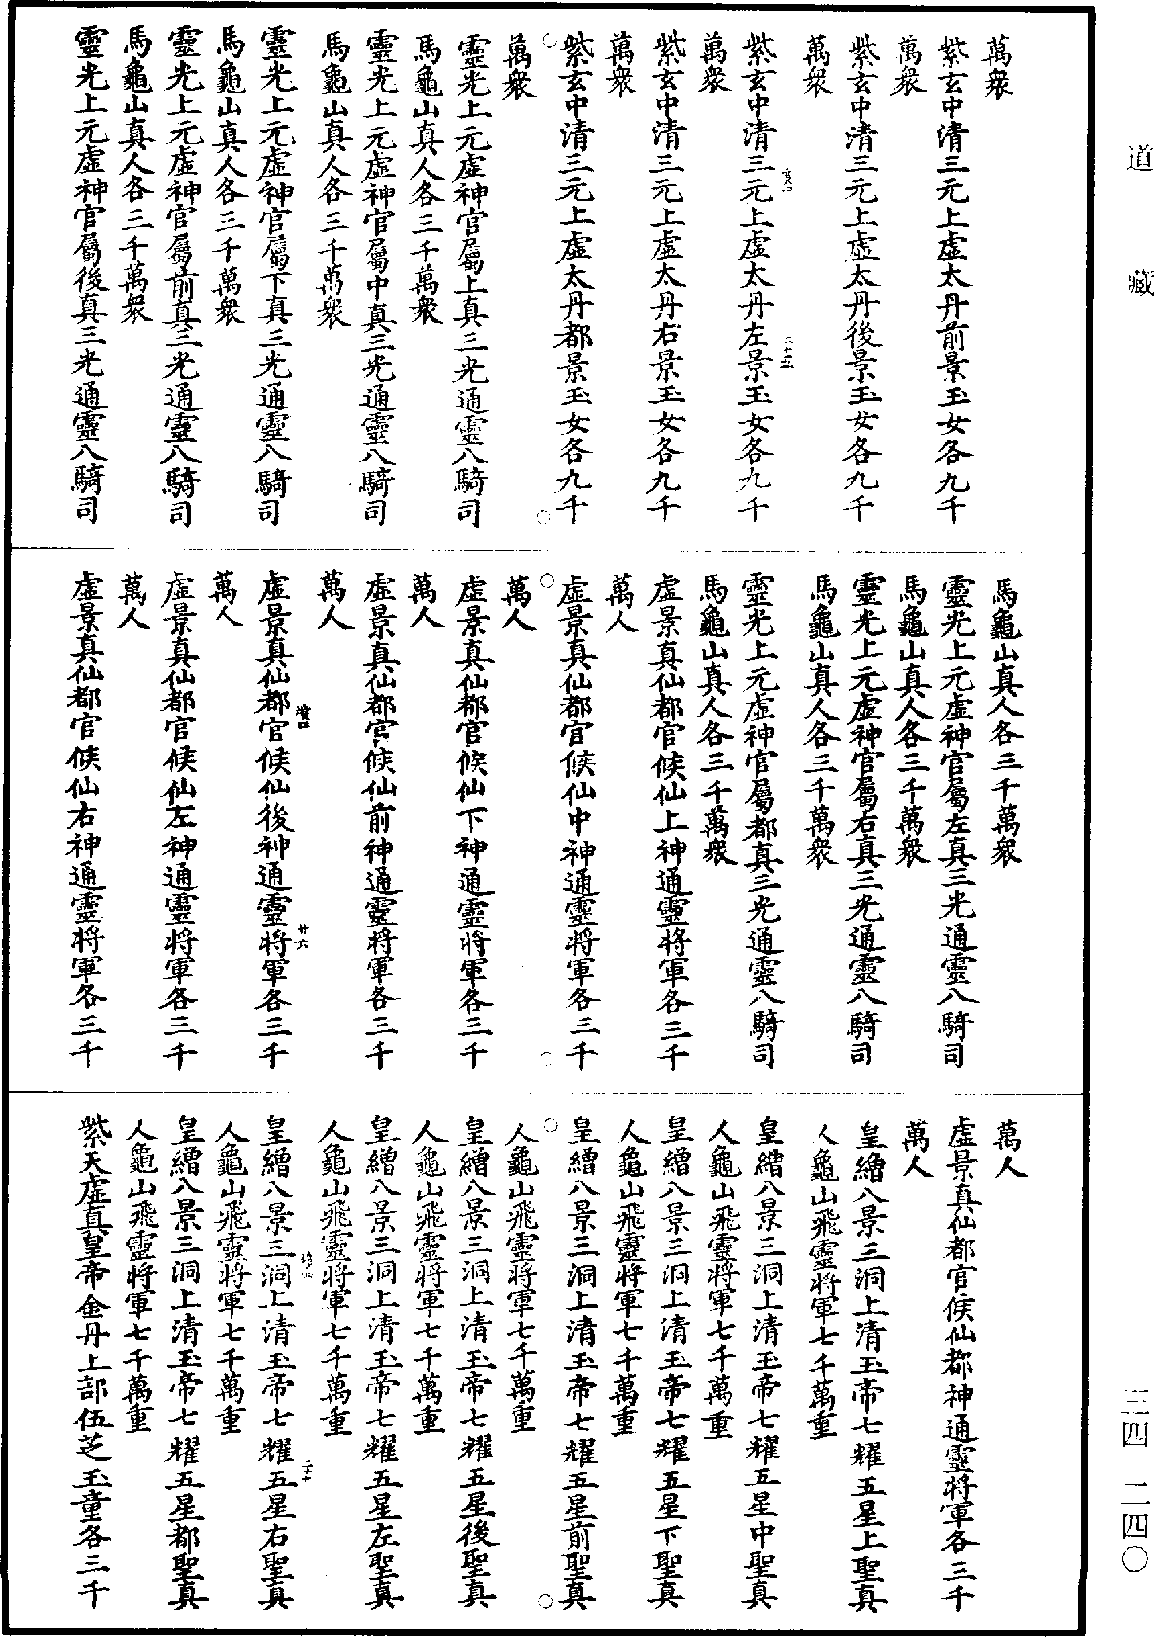 道藏
三四 二四〇
萬衆
紫玄中清三元上虛太丹前景玉女各九千
萬衆
紫玄中清三元上虛太丹後景玉女各九千
萬衆
紫玄中清三元上虛太丹左景玉女各九千
萬衆
紫玄中清三元上虛太丹右景玉女各九千
萬衆
紫玄中清三元上虛太丹都景玉女各九千
萬衆
靈光上元虛神官屬上真三光通靈八騎司
馬龜山真人各三千萬衆
靈光上元虛神官屬中真三光通靈八騎司
馬龜山真人各三千萬衆
靈光上元虛神官屬下真三光通靈八騎司
馬龜山真人各三千萬衆
靈光上元虛神官屬前真三光通靈八騎司
馬龜山真人各三千萬衆
靈光上元虛神官屬後真三光通靈八騎司
馬龜山真人各三千萬衆
靈光上元虛神官屬左真三光通靈八騎司
馬龜山真人各三千萬衆
靈光上元虛神官屬右真三光通靈八騎司
馬龜山真人各三千萬衆
靈光上元虛神官屬都真三光通靈八騎司
馬龜山真人各三千萬衆
虛景真仙都官候仙上神通靈將軍各三千
萬人
虛景真仙都官候仙中神通靈將軍各三千
萬人
虛景真仙都官候仙下神通靈將軍各三千
萬人
虛景真仙都官候仙前神通靈將軍各三千
萬人
虛景真仙都官候仙後神通靈將軍各三千
廿六
萬人
虛景真仙都官候仙左神通靈將軍各三千
萬人
虛景真仙都官候仙右神通靈將軍各三千
萬人
虛景真仙都官候仙都神通靈將軍各三千
萬人
皇繒八景三洞上清玉帝七耀五星上聖真
人龜山飛靈將軍七千萬重
皇繒八景三洞上清玉帝七耀五星中聖真
人龜山飛靈將軍七千萬重
皇繒八景三洞上清玉帝七耀五星下聖真
人龜山飛靈將軍七千萬重
皇繒八景三洞上清玉帝七耀五星前聖真
人龜山飛靈將軍七千萬重
皇繒八景三洞上清玉帝七耀五星後聖真
人龜山飛靈將軍七千萬重
皇繒八景三洞上清玉帝七耀五星左聖真
人龜山飛靈將軍七千萬重
皇繒八景三洞上清玉帝七耀五星右聖真
人龜山飛靈將軍七千萬重
皇繒八景三洞上清玉帝七耀五星都聖真
人龜山飛靈將軍七千萬重
紫天虛真皇帝金丹上部伍芝玉童各三千